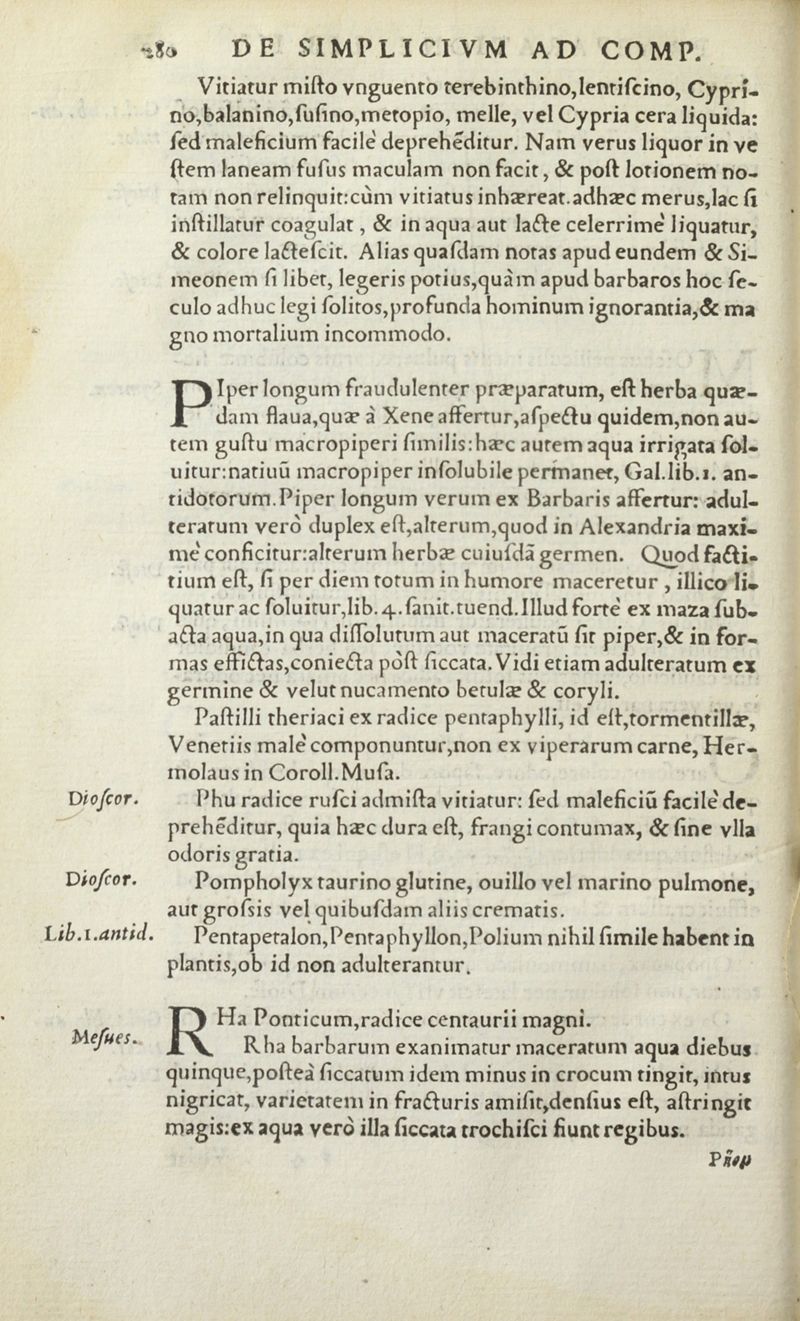 280 DE SIMPLICIVM AD COMP.
Vitiatur miſto vnguento terebinthino,lentiſcino, Cypri-
no,balanino,ſuſino,metopio, melle, vel Cypria cera liquida:
ſed maleficium facilè deprehēditur. Nam verus liquor in ve
ſtem laneam fuſus maculam non facit, & poſt lotionem no-
tam non relinquit:cùm vitiatus inhæreat.adhæc merus,lac ſi
inſtillatur coagulat, & in aqua aut lacte celerrimè liquatur,
& colore lacteſcit. Alias quaſdam notas apud eundem & Si-
meonem ſi libet, legeris potius,quàm apud barbaros hoc ſe-
culo adhuc legi ſolitos,profunda hominum ignorantia,& ma
gno mortalium incommodo.
PIper longum fraudulenter præparatum, eſt herba quæ-
dam flaua,quæ à Xene affertur,aſpectu quidem,non au-
tem guſtu macropiperi ſimilis:hæc autem aqua irrigata ſol-
uitur:natiuū macropiper inſolubile permanet, Gal.lib.1. an-
tidotorum.Piper longum verum ex Barbaris affertur: adul-
teratum verò duplex eſt,alterum,quod in Alexandria maxi-
mè conficitur:alterum herbæ cuiuſdā germen. Quod facti-
tium eſt, ſi per diem totum in humore maceretur, illico li-
quatur ac ſoluitur,lib.4.ſanit.tuend.Illud fortè ex maza ſub-
acta aqua,in qua diſſolutum aut maceratū ſit piper,& in for-
mas effictas,coniecta pòſt ſiccata.Vidi etiam adulteratum ex
germine & velut nucamento betulæ & coryli.
Paſtilli theriaci ex radice pentaphylli, id eſt,tormentillæ,
Venetiis malè componuntur,non ex viperarum carne, Her-
molaus in Coroll.Muſa.
Dioſcor.
Phu radice ruſci admiſta vitiatur: ſed maleficiū facilè de-
prehēditur, quia hæc dura eſt, frangi contumax, & ſine vlla
odoris gratia.
Dioſcor.
Pompholyx taurino glutine, ouillo vel marino pulmone,
aut groſsis vel quibuſdam aliis crematis.
Lib.1.antid.
Pentapetalon,Pentaphyllon,Polium nihil ſimile habent in
plantis,ob id non adulterantur.
RHa Ponticum,radice centaurii magni.
Meſues.
Rha barbarum exanimatur maceratum aqua diebus
quinque,poſteà ſiccatum idem minus in crocum tingit, intus
nigricat, varietatem in fracturis amiſit,denſius eſt, aſtringit
magis:ex aqua verò illa ſiccata trochiſci fiunt regibus.